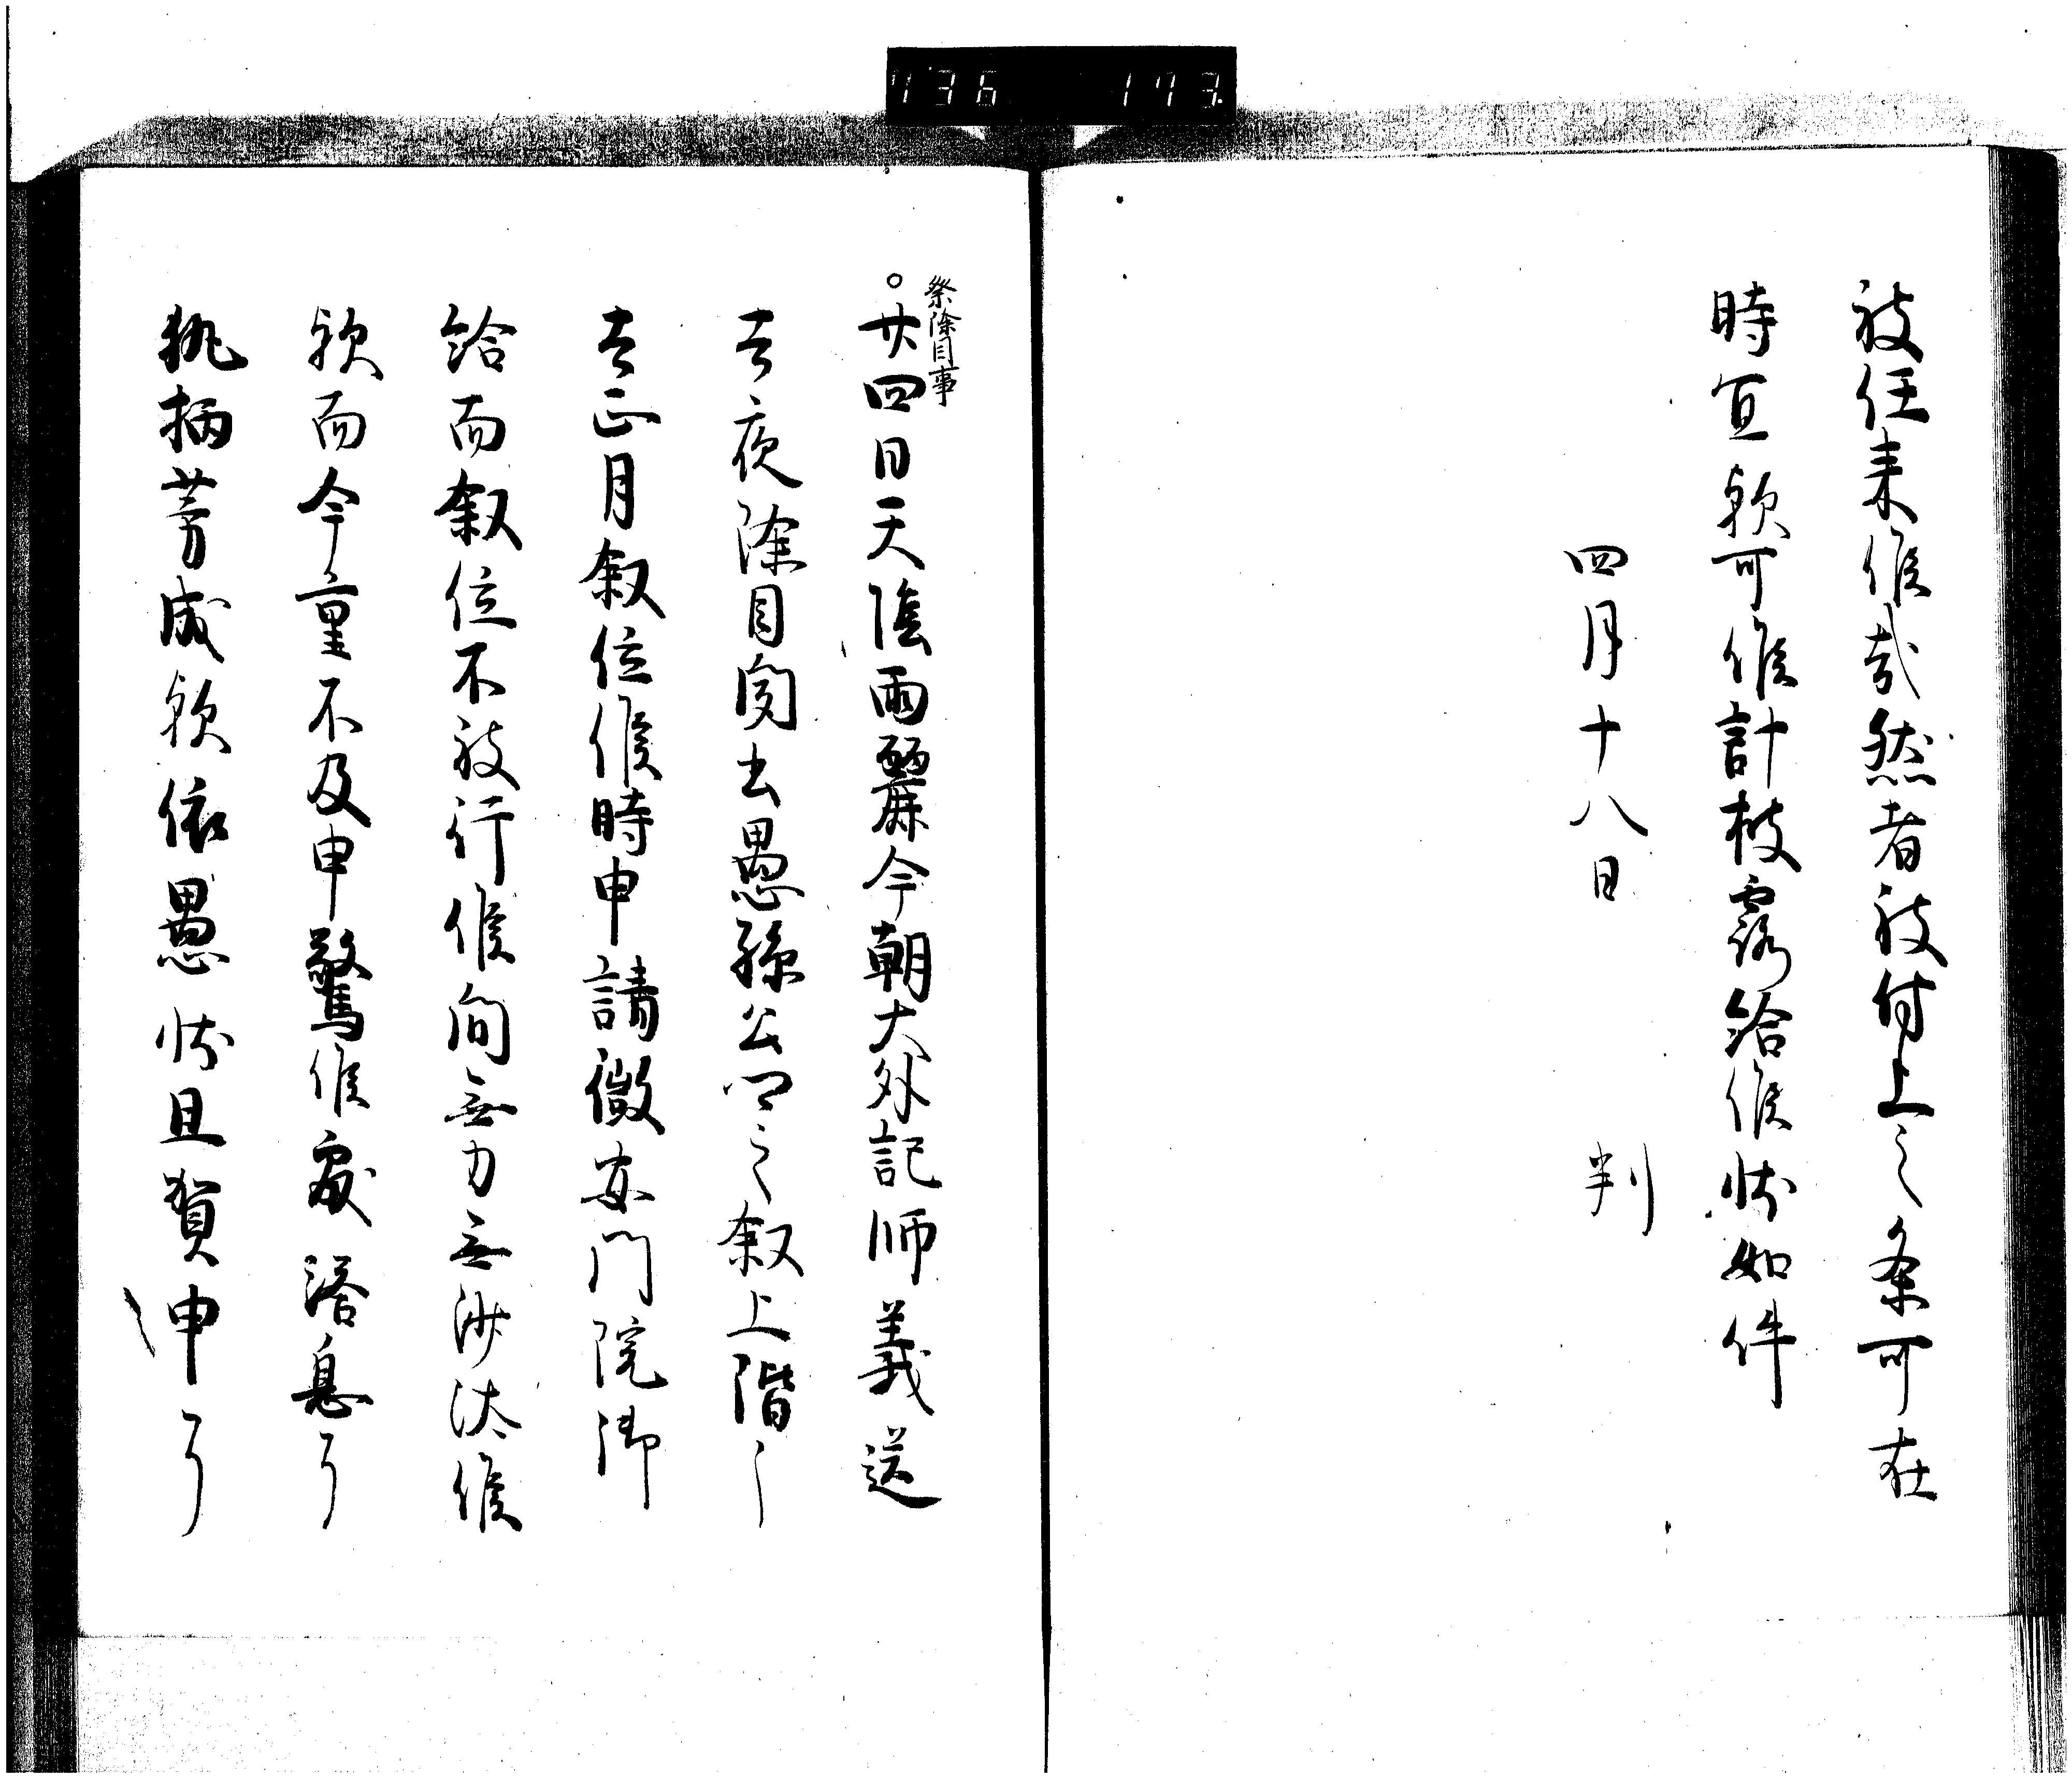 136 173
被任来候哉然者被付上之条可在
時宜歟可候計披露給候状如件
四月十八日 判
祭除目事
○廿四日天陰雨麗今朝大外記師義送
去夜除目聞書愚孫公四之叙上階之
去正月叙位候時申請徽安門院御
給而叙位不被行候間無力無沙汰候
歟而今重不及申驚候處浴恩了
執柄芳成歟依愚状且賀申了